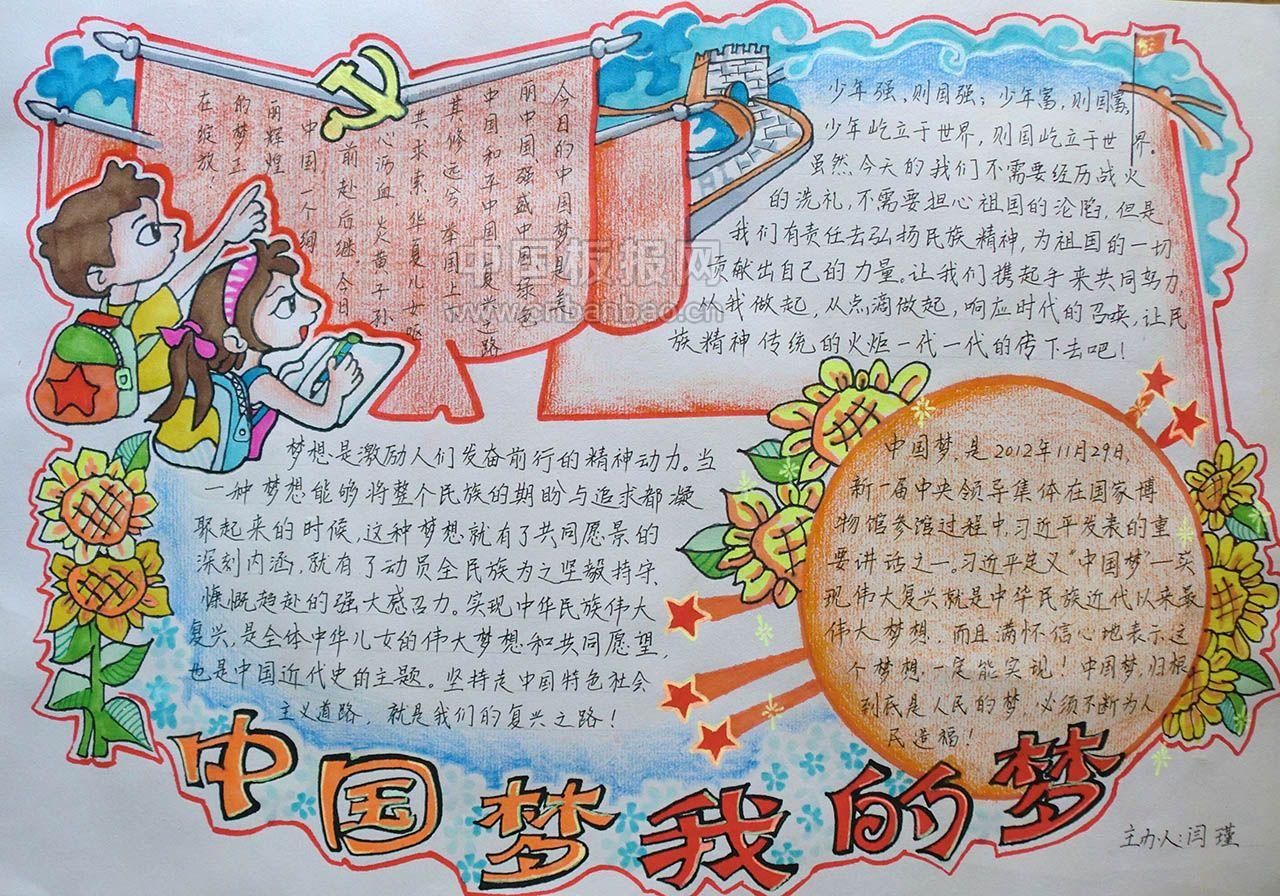 今日的中国梦是美
丽中国、强盛中国、绿色
中国和平中国。复兴之路
其修远兮，举国上
共求索，华夏儿女呕
心沥血，炎黄子孙
前赴后继，今日
中国一个绚
丽辉煌
的梦正
在绽放！
少年强、则国强；少年富，则国富，
少年屹立于世界，则国屹立于世界。
虽然今天的我们不需要经历战火
的洗礼，不需要担心祖国的沦陷，但是，
我们有责任去弘扬民族精神，为祖国的一切
贡献出自己的力量。让我们携起手来共同努力
从我做起，从点滴做起，响应时代的召唤，让民
族精神传统的火炬一代一代的传下去吧！
中国板报网
www.cnbanbao.cn
梦想是激励人们发奋前行的精神动力。当
一种梦想能够将整个民族的期盼与追求都凝
聚起来的时候，这种梦想就有了共同愿景的
深刻内涵，就有了动员全民族为之坚毅持守、
慷慨趋赴的强大感召力。实现中华民族伟大
复兴，是全体中华儿女的伟大梦想和共同愿望，
也是中国近代史的主题。坚持走中国特色社会
主义道路，就是我们的复兴之路！
中国梦，是2012年11月29日，
新一届中央领导集体在国家博
物馆参馆过程中，习近平发表的重
要讲话之一。习近平定义“中国梦”—实
现伟大复兴就是中华民族近代以来最
伟大梦想，而且满怀信心地表示这
个梦想一定能实现！中国梦，归根
到底是人民的梦，必须不断为人
民造福！
中国梦我的梦
主办人：闫瑾